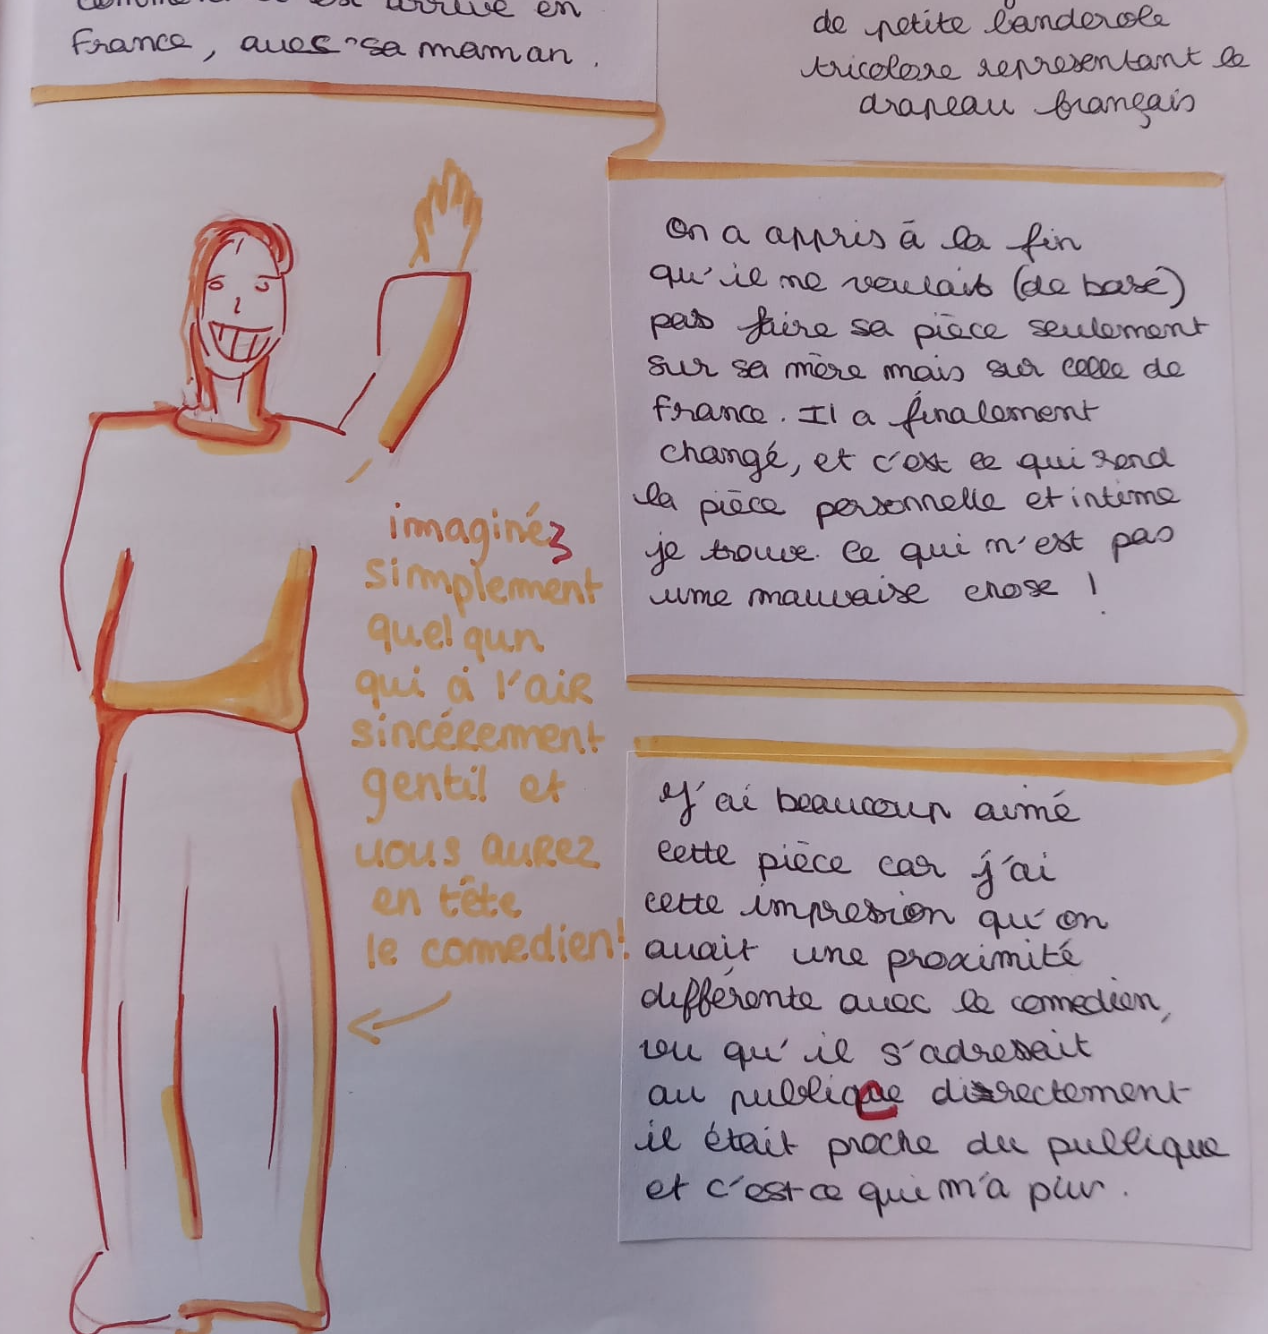 est arrivé en
France, avec sa maman.
de petite banderole
tricolore representant le
drapeau français
On a appris à la fin
qu'il ne voulait (de base)
pas faire sa pièce seulement
sur sa mère mais sur celle de
France. Il a finalement
changé, et c'est ce qui rend
la pièce personnelle et intime
je trouve. Ce qui n'est pas
une mauvaise chose !
imaginéz
simplement
quelqun
qui à l'air
sincérement
gentil et
vous aurez
en tête
le comedien!
J'ai beaucoup aimé
cette pièce car j'ai
cette impresion qu'on
avait une proximité
différente avec le comedien,
vu qu'il s'adressait
au publique directement
il était proche du publique
et c'est ce qui m'a plu.